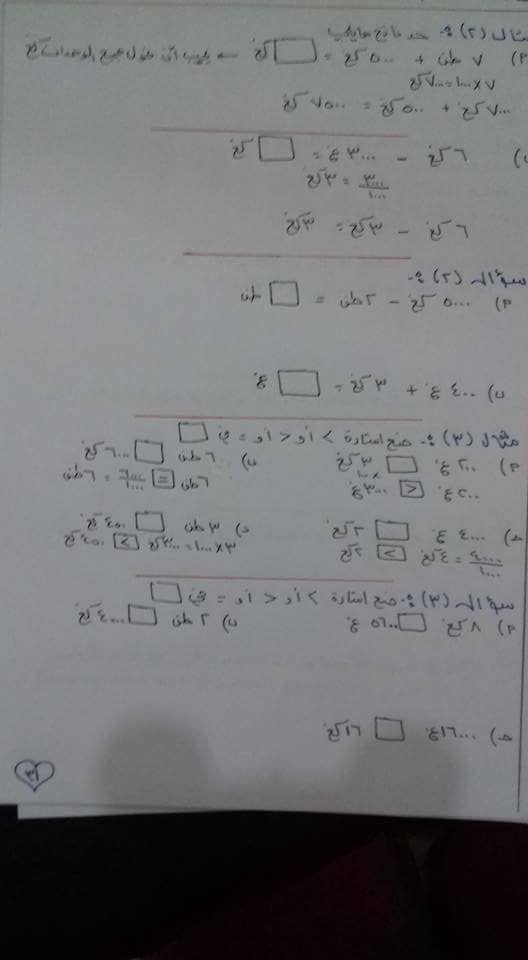 مثال (٢) :- جد ناتج مايلي
٢) ٧ طن + ٥٠٠ كغ = □ كغ ← يجب أن جميع الوحدات كغ
٧ × ١٠٠٠ = ٧٠٠٠ كغ
٧٠٠٠ كغ + ٥٠٠ كغ = ٧٥٠٠ كغ
ب) ٦ كغ - ٣٠٠٠ غ = □ كغ
٣٠٠٠ / ١٠٠٠ = ٣ كغ
٦ كغ - ٣ كغ = ٣ كغ
سؤال (٢) :-
٢) ٥٠٠٠ كغ - ٢ طن = □ طن
ب) ٤٠٠ غ + ٣ كغ = □ غ
مثال (٣) :- ضع اشارة > أو < أو = في □
٢) ٢٠٠ غ □ ٣ كغ ب) ٦ طن □ ٦٠٠٠ كغ
× ١٠٠٠
٢٠٠ غ < ٣٠٠٠ غ ٦ طن = ٦٠٠٠ / ١٠٠٠ = ٦ طن
ج) ٤٠٠٠ غ □ ٢ كغ د) ٣ طن □ ٤٥٠ كغ
٤٠٠٠ / ١٠٠٠ = ٤ كغ > ٢ كغ ٣ × ١٠٠٠ = ٣٠٠٠ كغ > ٤٥٠ كغ
سؤال (٣) :- ضع اشارة > أو < أو = في □
٢) ٨ كغ □ ٥٦٠٠ غ ب) ٢ طن □ ٤٠٠٠ كغ
ج) ١٦٠٠٠ غ □ ١٦ كغ
٣١